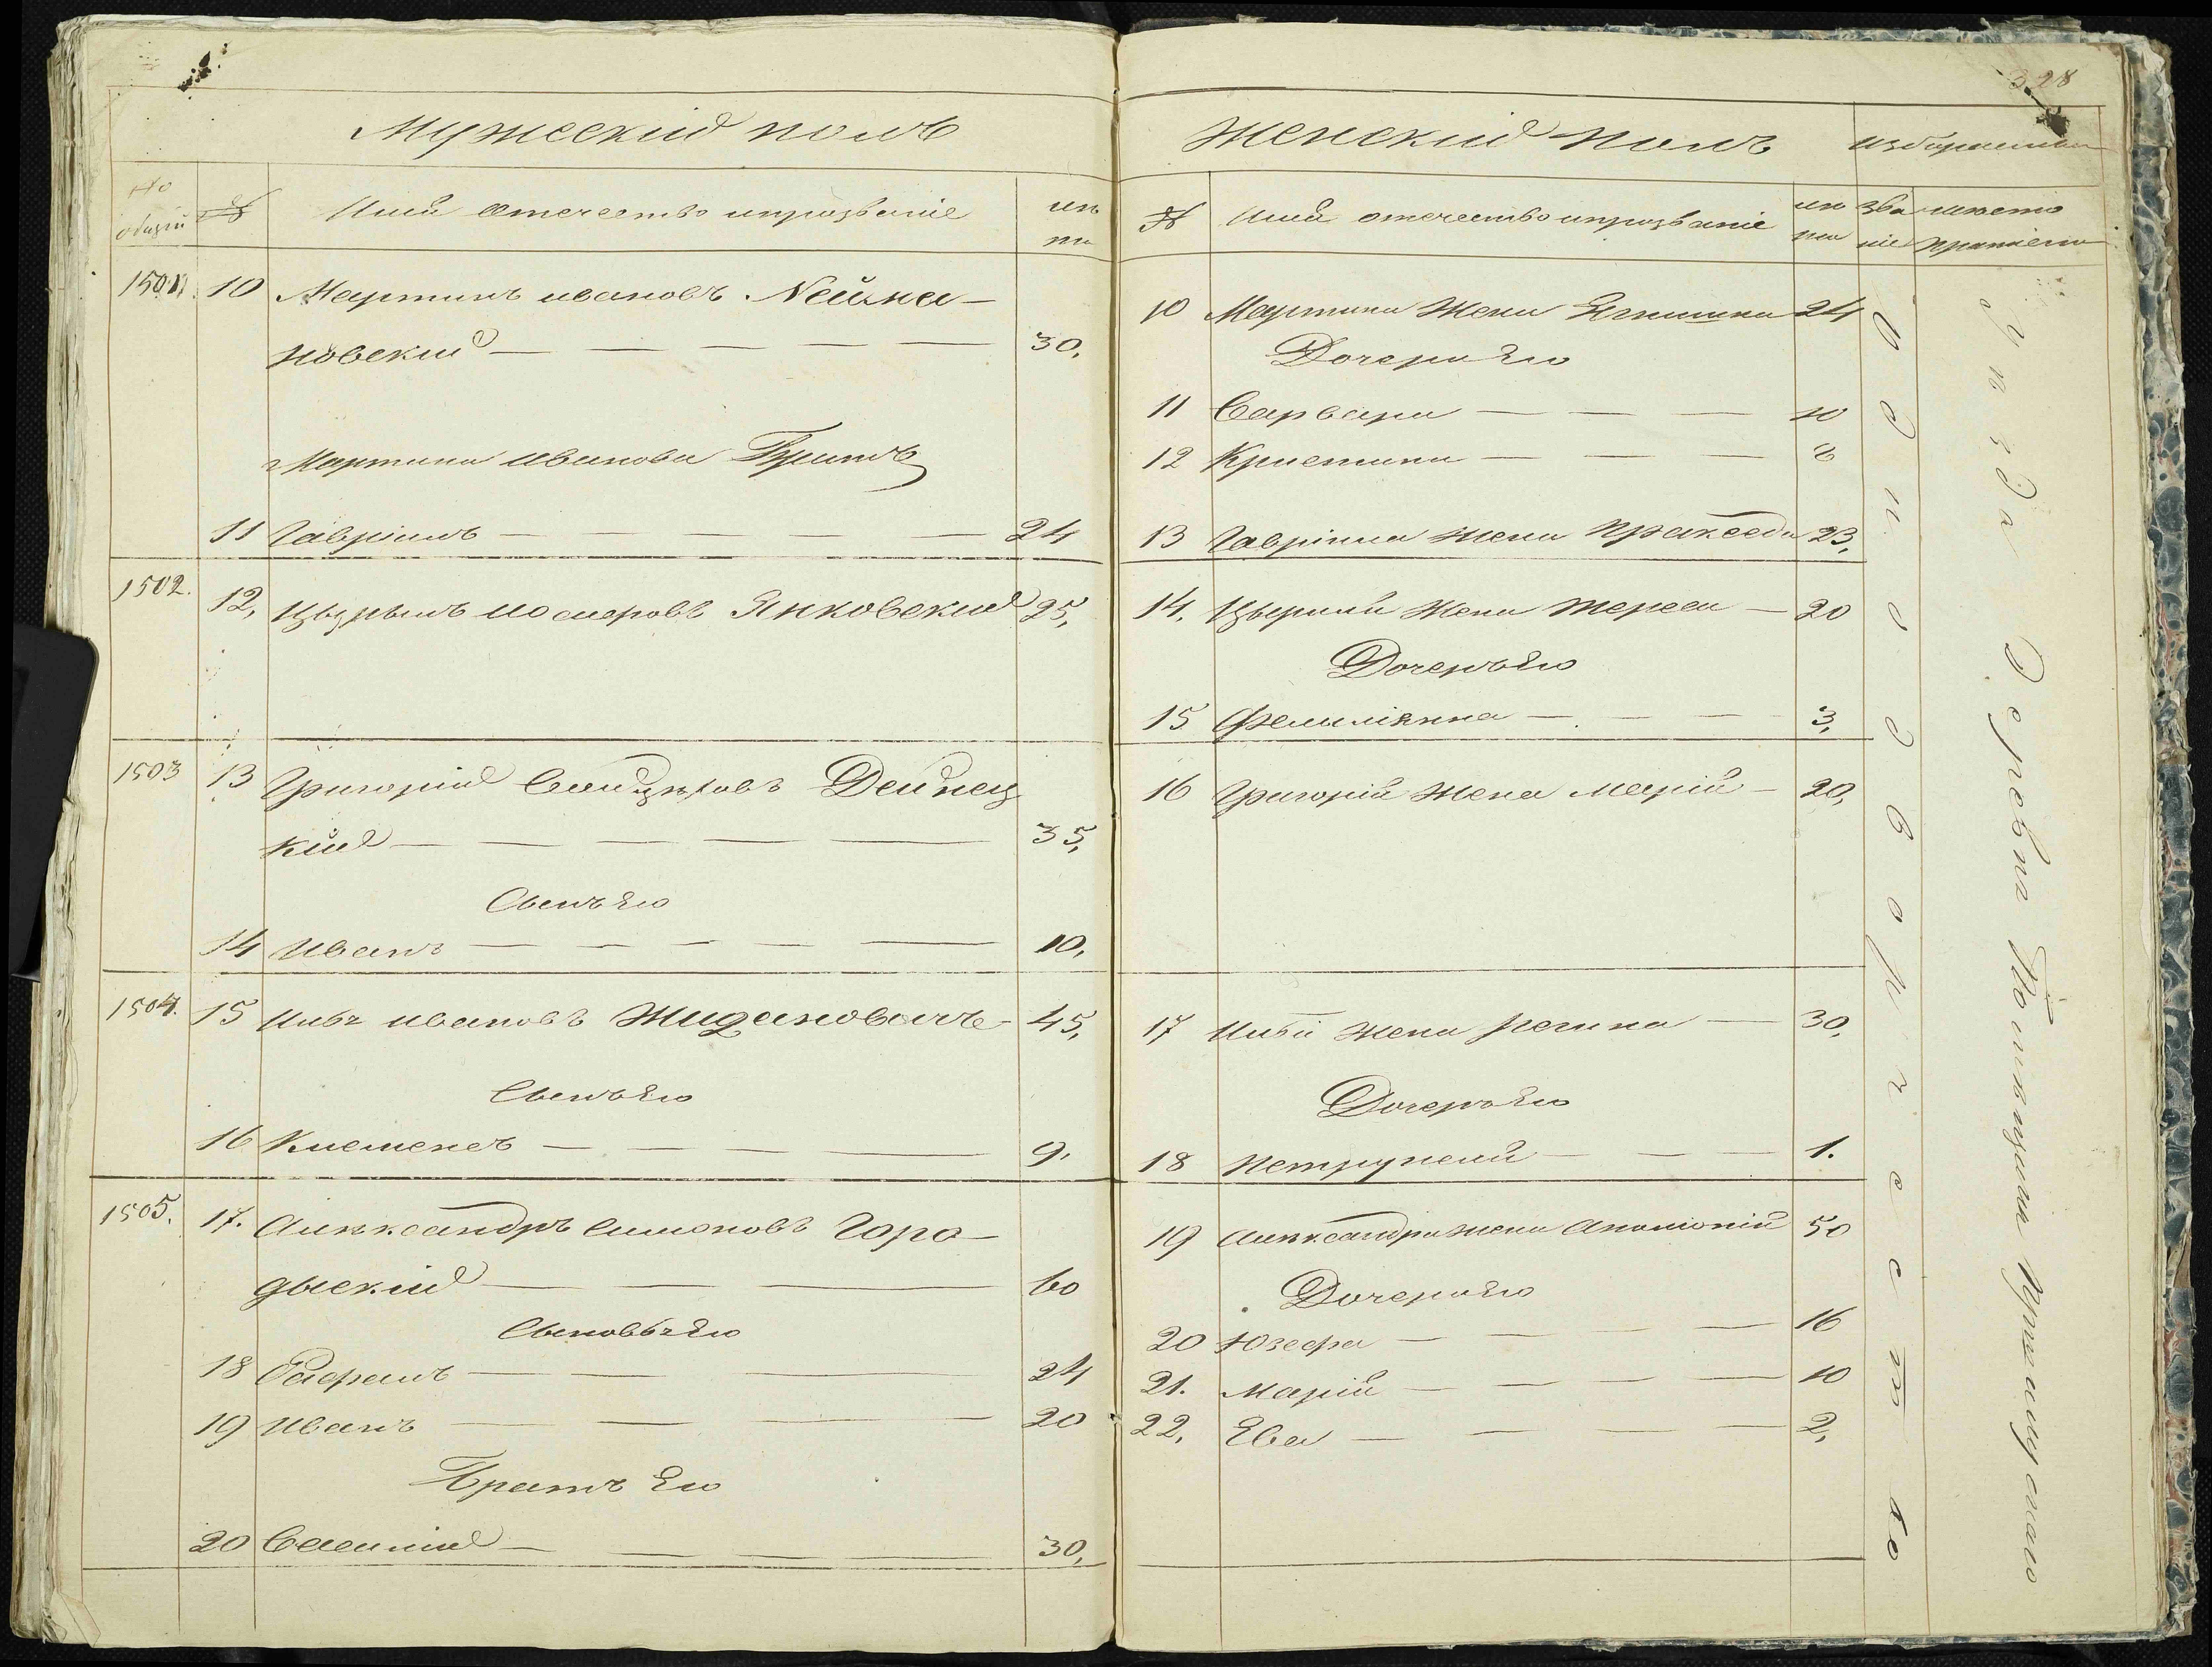 Мужескій полъ
№ общій
№
Имя отечество ипрозваніе
лѣта
1501 10 Мартинъ ивановъ Нейма-
новский — — — — — 30,
Мартина иванова
11 Гавріилъ — — — — — 24
1502. 12, Янковский 25,
1503 13 Григорій Дейнец
кий — — — — — 35,
Сынъ Его
14 Иванъ — — — — — 10,
1504. 15 Ильѣ ивановъ Жидановичъ - 45,
Сынъ Его
16 Клеменсъ — — — — 9,
1505. 17. Алѣксандръ Симоновъ Горо-
дыскій — — — 60
Сыновья Его
18 Рафалъ — — — 24
19 Иванъ — — — 20
Братъ Его
20 Василий — — — — — 30,
328
Женский полъ
№
Имя отечество ипрозваніе
лѣта
званіе
10 Мартина жена 24
Дочери Его
11 Варвара — — — 10
12 Кристина — — — 6
13 Гавріила жена Пракседа 23,
14. жена тереса — 20
Дочеръ Его
15 — — — 3,
16 Григорія жена Марія — 20,
17 Ильи жена регина — 30,
Дочеръ Его
18 петрунеля — — — 1.
19 Алѣксандра жена Аполонія 50
Дочери Его
20 Юзефа — — — — 16
21. Марія — — — — 10
22, Ева — — — — 2,
однодворческого
уѣзда Деревни